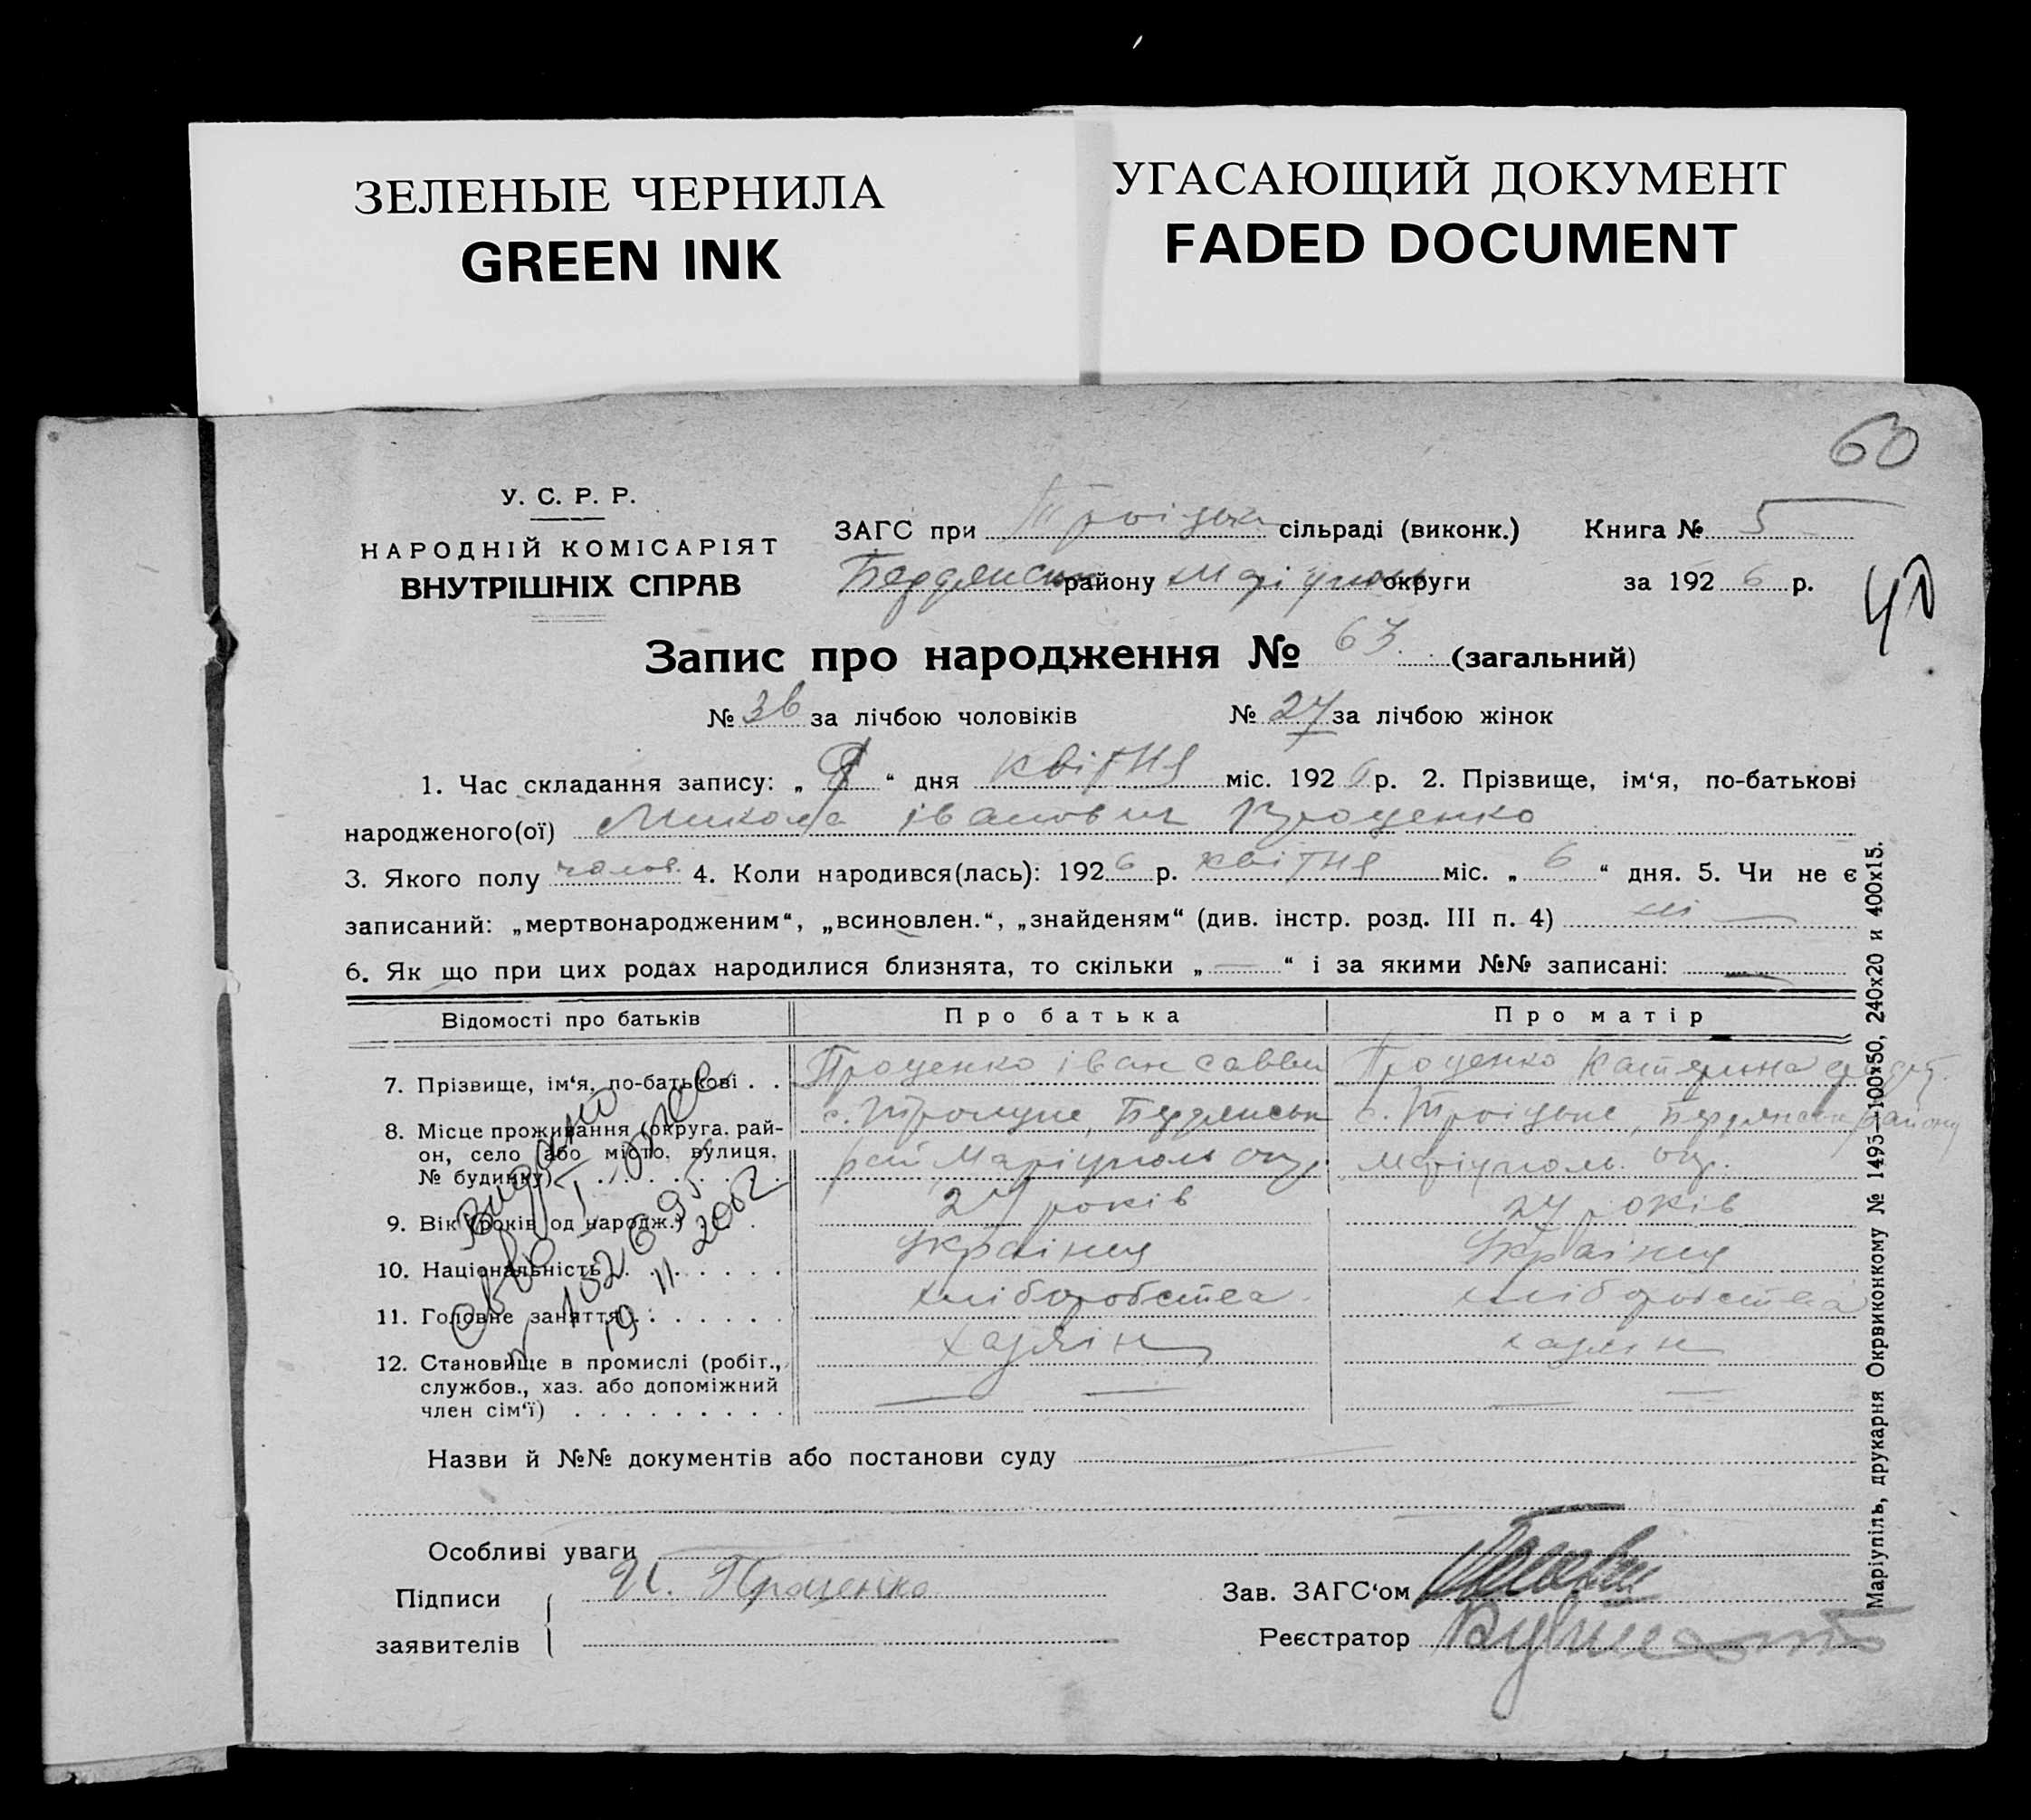 ЗЕЛЕНЫЕ ЧЕРНИЛА
GREEN INK
УГАСАЮЩИЙ ДОКУМЕНТ
FADED DOCUMENT
60
У. С. Р. Р.
НАРОДНІЙ КОМІСАРІЯТ
ВНУТРІШНІХ СПРАВ
ЗАГС при Троіцьк сільраді (виконк.) Книга № 5
Бердянськ району Маріуполь округи за 1926 р.
40
Запис про народження № 63 (загальний)
№ 36 за лічбою чоловіків № 27 за лічбою жінок
1. Час складання запису: „ “ дня квітня міс. 1926 р. 2. Прізвище, ім‘я, по-батькові
народженого(ої) Микола іванович Проценко
3. Якого полу чолов. 4. Коли народився(лась): 1926 р. квітня міс. „ 6 “ дня. 5. Чи не є
записаний: „мертвонародженим“, „всиновлен.“, „знайденям“ (див. інстр. розд. III п. 4) ні —
6. Як що при цих родах народилися близнята, то скільки „ — “ і за якими №№ записані: —
Відомості про батьків Про батька Про матір
7. Прізвище, ім‘я, по-батькові . . Проценко іван савви Проценко Катерина
8. Місце проживання (округа, рай-
он, село або місто, вулиця,
№ будинку) . . .
с. Троіцьке, Бердянськ
рай Маріуполь окр.
с. Троіцьке, Бердянськ району
Маріуполь. окр.
9. Вік (років од народж.) 27 років 24 років
10. Національність . . . Українця Українця
11. Головне заняття . . . хліборобства хліборобства
12. Становище в промислі (робіт.,
службов., хаз. або допоміжний
член сім‘ї) . . .
хазяін
хазяін
Видано
свід I-
№ 102695
19 11 2002
Назви й №№ документів або постанови суду
Особливі уваги
Підписи
заявителів
И. Проценко
Зав. ЗАГС‘ом
Реєстратор
Маріупіль, друкарня Окрвиконкому № 1495—100х50, 240х20 и 400х15.